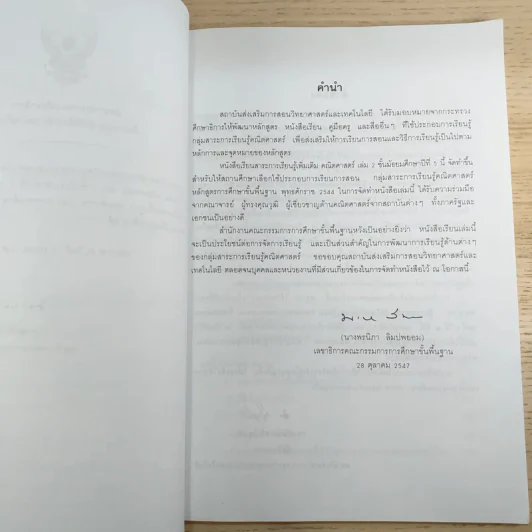 คำนำ
สถาบันส่งเสริมการสอนวิทยาศาสตร์และเทคโนโลยี ได้รับมอบหมายจากกระทรวง
ศึกษาธิการให้พัฒนาหลักสูตร หนังสือเรียน คู่มือครู และสื่ออื่นๆ ที่ใช้ประกอบการเรียนรู้
กลุ่มสาระการเรียนรู้คณิตศาสตร์ เพื่อส่งเสริมให้การเรียนการสอนและวิธีการเรียนรู้เป็นไปตาม
หลักการและจุดหมายของหลักสูตร
หนังสือเรียนสาระการเรียนรู้เพิ่มเติม คณิตศาสตร์ เล่ม 2 ชั้นมัธยมศึกษาปีที่ นี้ จัดทำขึ้น
สำหรับให้สถานศึกษาเลือกใช้ประกอบการเรียนการสอน กลุ่มสาระการเรียนรู้คณิตศาสตร์
หลักสูตรการศึกษาขั้นพื้นฐาน พุทธศักราช 2544 ในการจัดทำหนังสือเล่มนี้ ได้รับความร่วมมือ
จากคณาจารย์ ผู้ทรงคุณวุฒิ ผู้เชี่ยวชาญด้านคณิตศาสตร์จากสถาบันต่างๆ ทั้งภาครัฐและ
เอกชนเป็นอย่างดี
สำนักงานคณะกรรมการการศึกษาขั้นพื้นฐานหวังเป็นอย่างยิ่งว่า หนังสือเรียนเล่มนี้
จะเป็นประโยชน์ต่อการจัดการเรียนรู้ และเป็นส่วนสำคัญในการพัฒนาการเรียนรู้ด้านต่างๆ
ของกลุ่มสาระการเรียนรู้คณิตศาสตร์ ขอขอบคุณสถาบันส่งเสริมการสอนวิทยาศาสตร์และ
เทคโนโลยี ตลอดจนบุคคลและหน่วยงานที่มีส่วนเกี่ยวข้องในการจัดทำหนังสือไว้ ณ โอกาสนี้
(นางพรนิภา ลิมปพยอม)
เลขาธิการคณะกรรมการการศึกษาขั้นพื้นฐาน
28 ตุลาคม 2547